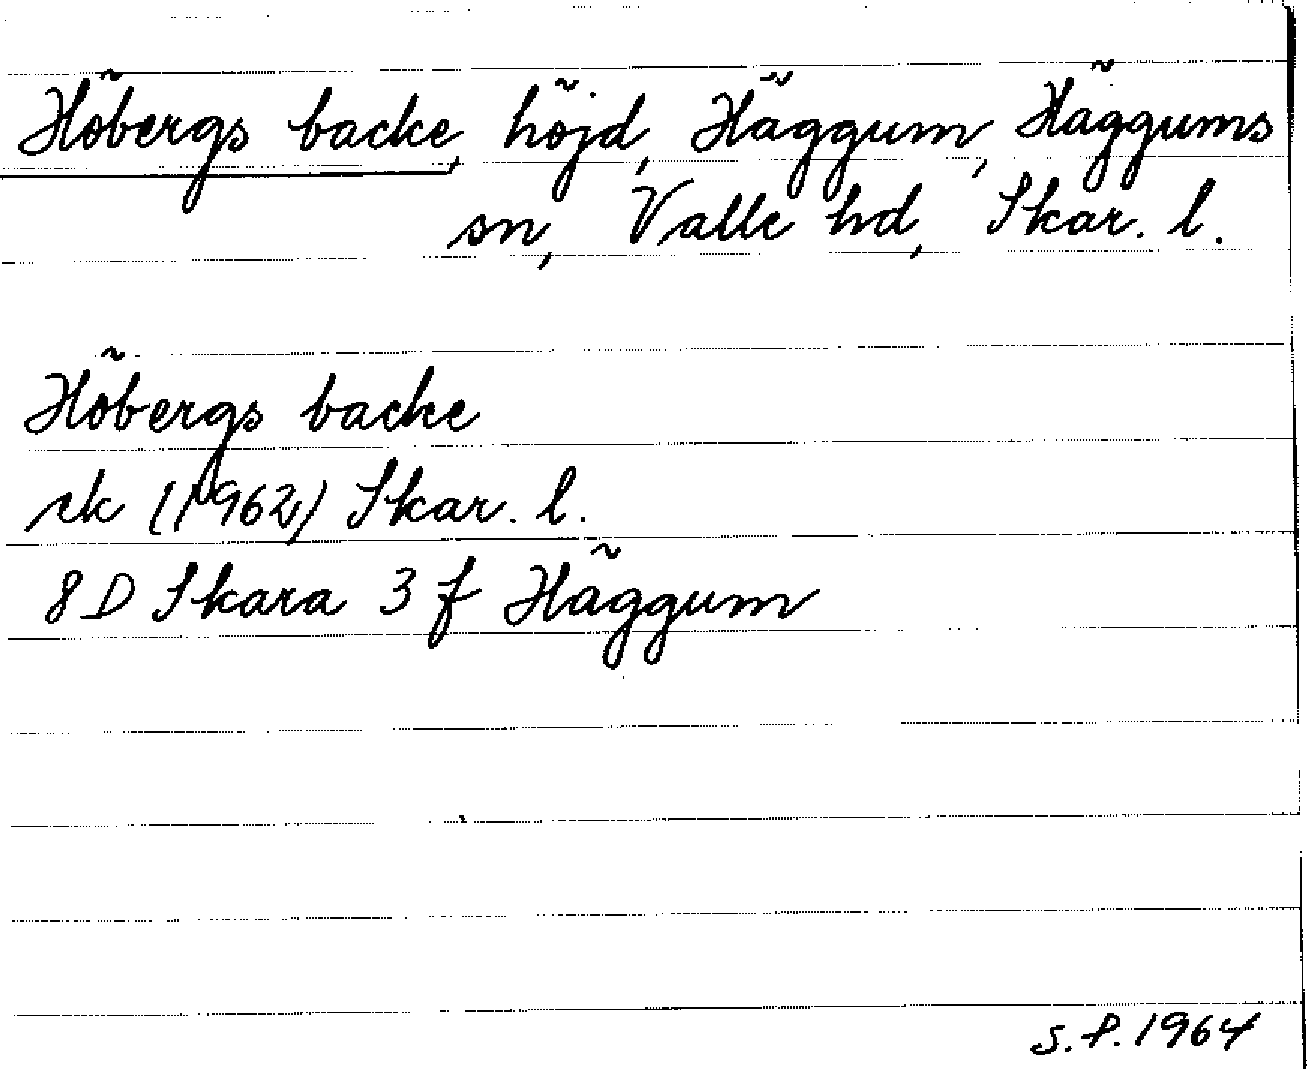 Höbergs backe, höjd, Häggum, Häggums
sn, Valle hd, Skar. l.
Höbergs backe
rk (1962) Skar. l.
8D Skara 3 f Häggum
S.P. 1964